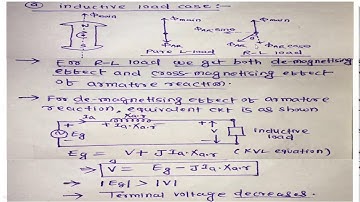 @ inductive load case:-
ϕmain ϕmain ϕmain
N S
ϕAR sinθ
ϕAR ϕAR ϕAR cosθ
Pure L load R-L load
→ For R-L load we get both de-magnetising
effect and cross-magnetising effect
of armature reaction.
→ For de-magnetising effect of armature
reaction, equivalent CKT is as shown
Ia Xa.r
Ia.Xa.r
Eg V Inductive
load
Eg = V + JIa.Xa.r (KVL equation)
→ V = Eg - JIa.Xa.r
→ |Eg| > |V|
→ Terminal voltage decreases.